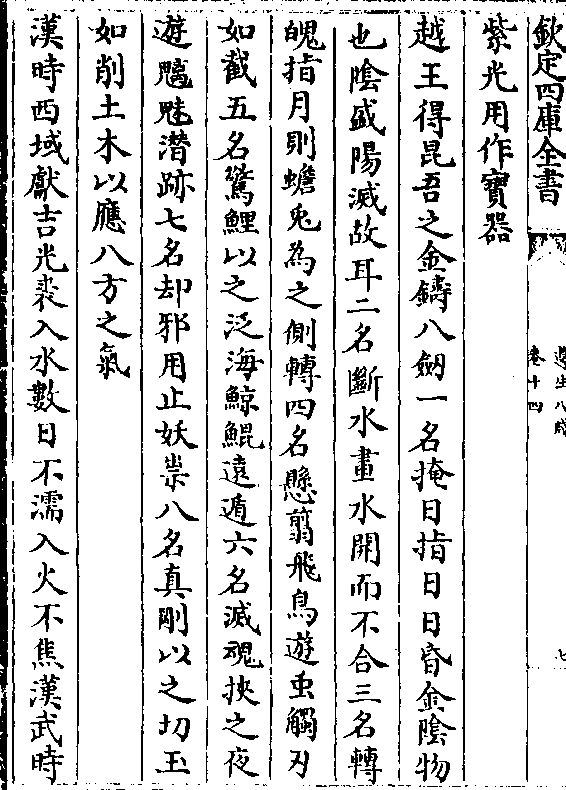 欽定四庫全書
遵生八牋
卷十四
七
紫光用作寶器
越王得昆吾之金鑄八劒一名掩日指日日昏金陰物
也陰盛陽滅故耳二名斷水畫水開而不合三名轉
魄指月則蟾兔為之側轉四名懸翦飛鳥遊虫觸刃
如截五名驚鯉以之泛海鯨鯤遠遁六名滅魂挾之夜
遊魑魅潛跡七名却邪用止妖祟八名真剛以之切玉
如削土木以應八方之氣
漢時西域獻吉光裘入水數日不濡入火不焦漢武時